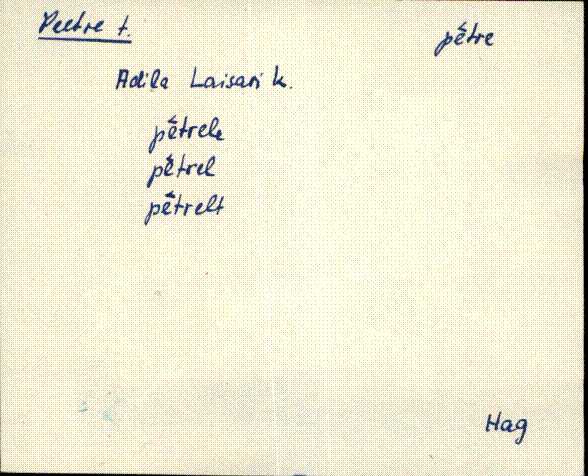 Peetre t.
pētre
Adila Laisari k.
pētrele
pētrel
pētrelt
Hag